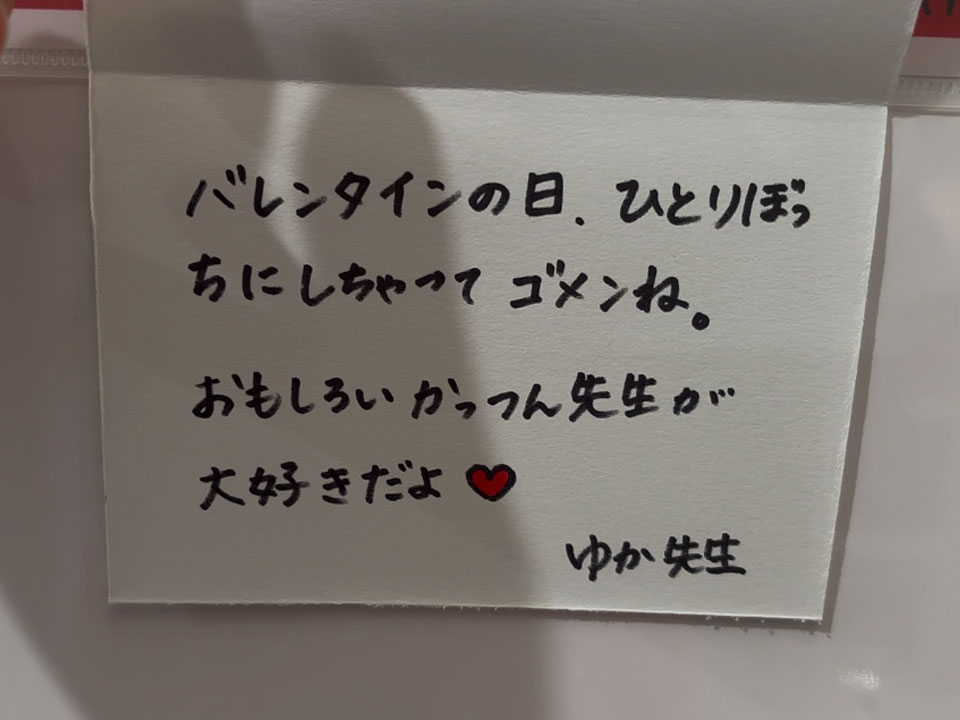 バレンタインの日、ひとりぼっ
ちにしちゃって ゴメンね。
おもしろい かっつん先生が
大好きだよ ♥
ゆか先生